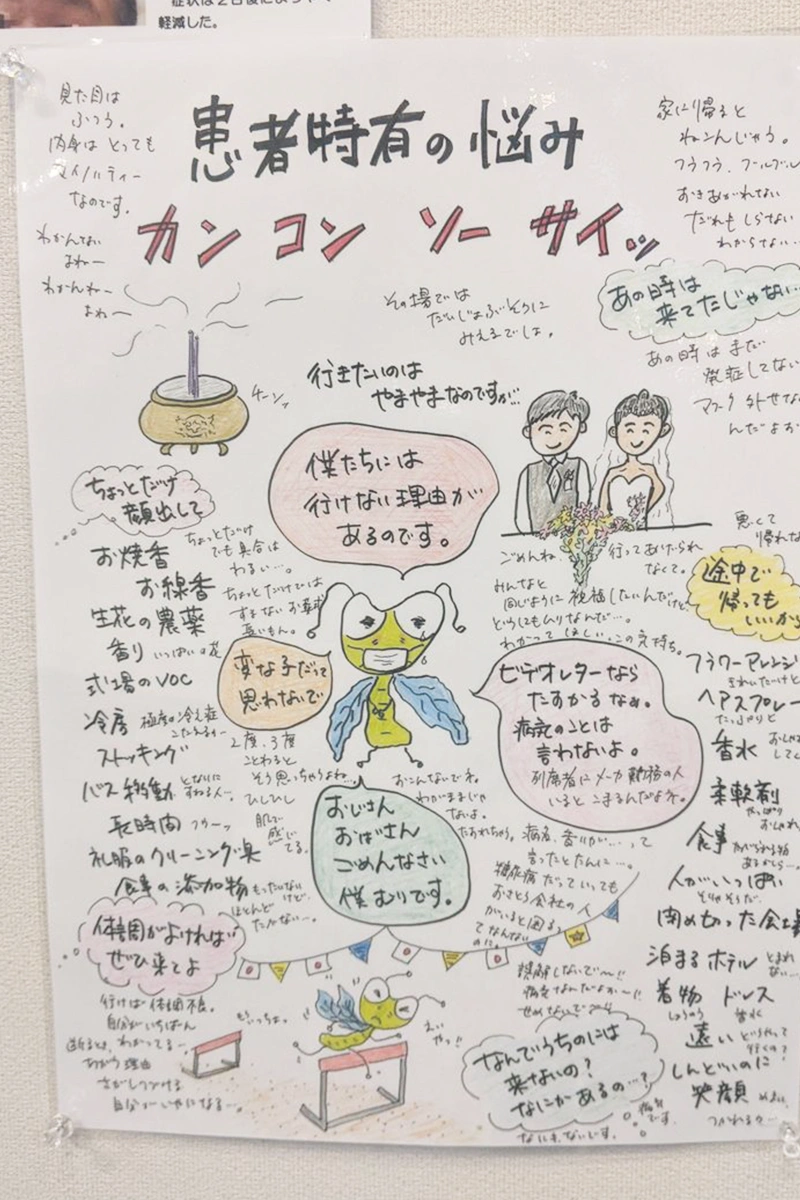 軽減した。
見た目は
ふつう。
内身は とっても
マイノリティー
なのです。
わかんない
よねー
わかんねー
よねー
患者特有の悩み
カン コン ソー サイッ
家に帰ると
ねこんじゃう。
フラフラ、グールグル
おきあがれない
だれもしらない
わからない…
その場では
だいじょぶそうに
みえるでしょ。
あの時は
来てたじゃない…
あの時はまだ
発症してない
マスク外せない
んだよお
行きたいのは
やまやまなのですが…
チーン
僕たちには
行けない理由が
あるのです。
ちょっとだけ
顔出して
ちょっとだけ
でも具合は
わるい…。
お焼香
お線香
生花の農薬
香り いっぱいの花
式場のVOC
冷房 極度の冷え症
ストッキング
バス移動
長時間
礼服のクリーニング臭
食事の添加物 もったいない
けど
ほとんど
変な子だって
思わないで
2度、3度
ことわると
そう思っちゃうよね…
ひしひし
肌で
感じ
てる。
ごめんね、行ってあげられ
なくて。
みんなと
同じように祝福したいんだけど
どうにもムリなんだ…。
わかってほしい、この気持ち。
悪くて
帰れな
途中で
帰っても
いいから
ビデオレターなら
たすかるなぁ。
病気のことは
言わないよ。
列席者にメーカ勤務の人
いるとこまるんだよネ。
おじさん
おばさん
ごめんなさい
僕ムリです。
おこんないでネ。
わがままじゃ
ないよ。
病名、香りが…。って
言ったとたんに…。
糖尿病だっていっても
おさとう会社の人
がいると困る
ってなんない
のに。
フラワーアレンジ
ヘアスプレー
たっぷりと
香水
柔軟剤
食事
人がいっぱい
そりゃそうだ
閉め切った会場
泊まるホテル
着物 ドレス
遠い
しんどいのに
笑顔
つかれる…
体調がよければ
ぜひ来てよ
行けば体調不良。
自分がいちばん
わかってるー。
ちがう理由
さがしつづける
自分がいやになる…。
もういっちょ。
えい
やっ!!
誤解しないで〜!!
病気なんだよおー!!
せめないでー
なんでうちのには
来ないの?
なにかあるの…?
病気
です。
なにもないです。